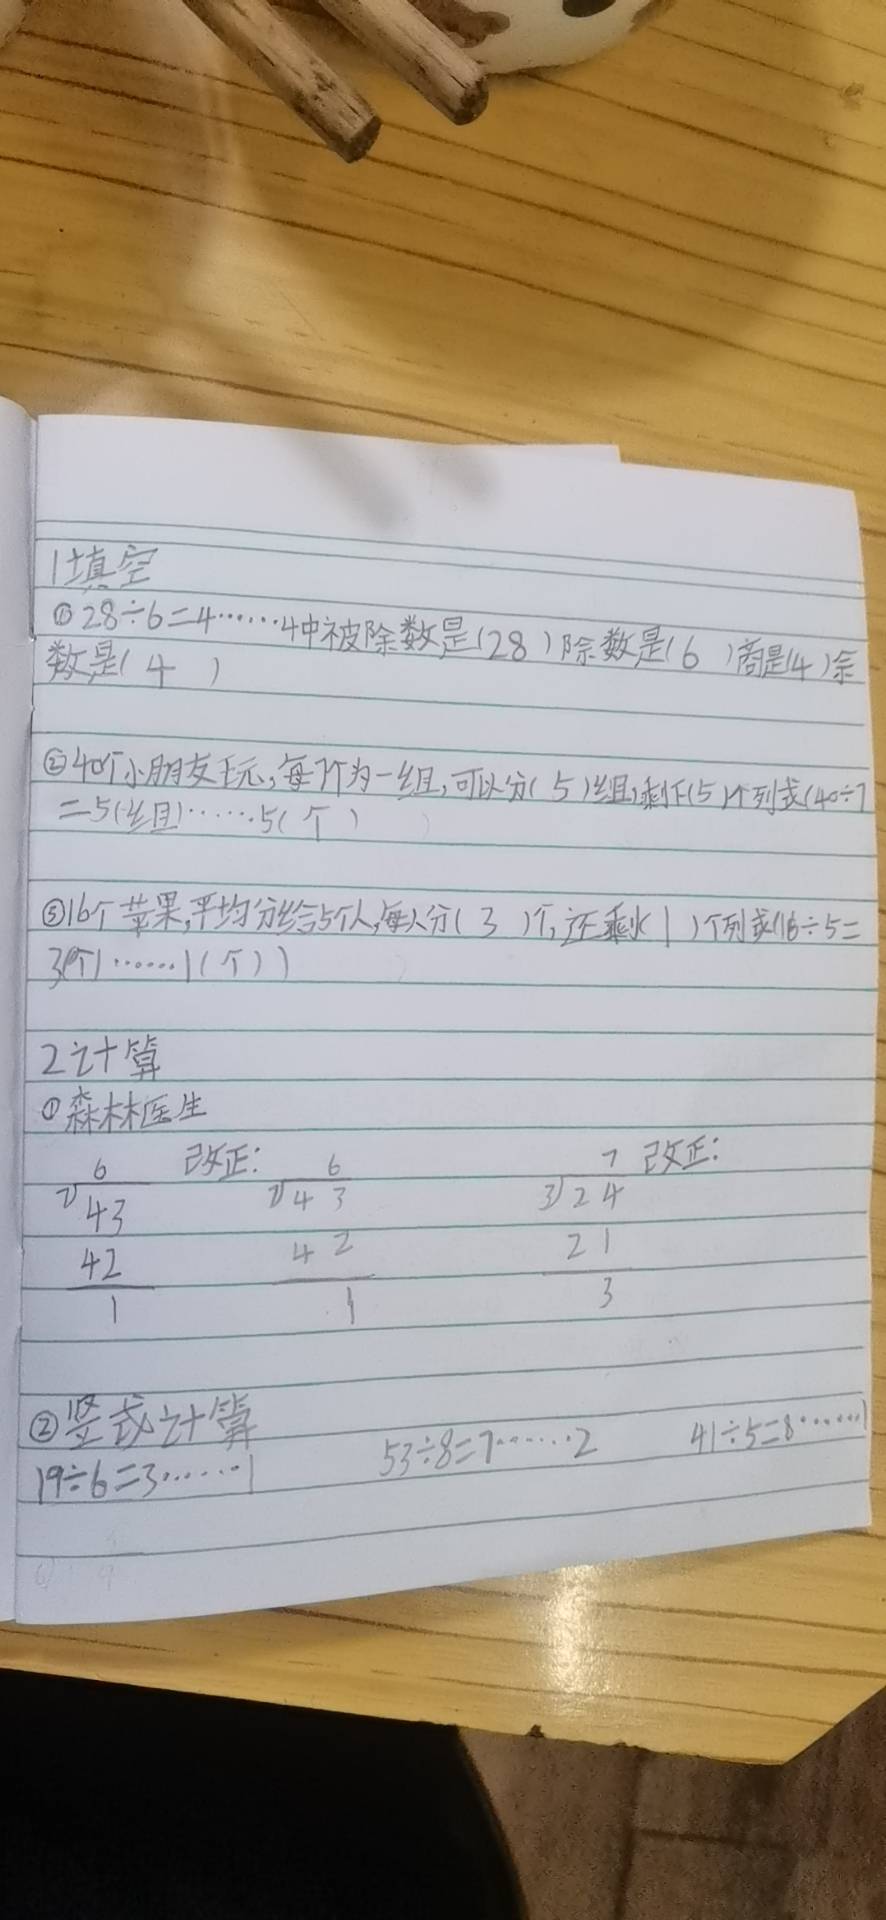 1填空
①28÷6=4……4中被除数是(28)除数是(6)商是(4)余
数是(4)
②40个小朋友玩,每7个为一组,可以分(5)组,剩下(5)个列式(40÷7
=5(组)……5(个)
③16个苹果,平均分给5个人,每人分(3)个,还剩(1)个列式(16÷5=
3(个)……1(个))
2计算
①森林医生
6 改正: 6 7 改正:
7)43 7)43 3)24
42 42 21
1 1 3
②竖式计算
19÷6=3……1 53÷8=7……2 41÷5=8……1